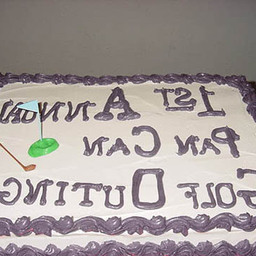 1ST ANNUAL
PAN CAN
GOLF OUTING